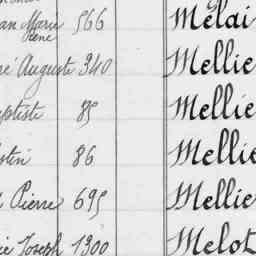 an Marie 566 Mélai
René
é Auguste 340 Mellie
aptiste 85 Mellie
stin 86 Mellie
Pierre 695 Mellie
ie Joseph 1300 Melot